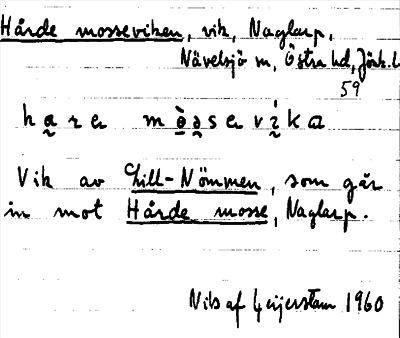 Hårde mosseviken, vik, Naglarp,
Nävelsjö sn, Östra hd, Jönk. l
59
Vik av Lill-Nömmen, som går
in mot Hårde mosse, Naglarp.
Nils af Geijerstam 1960